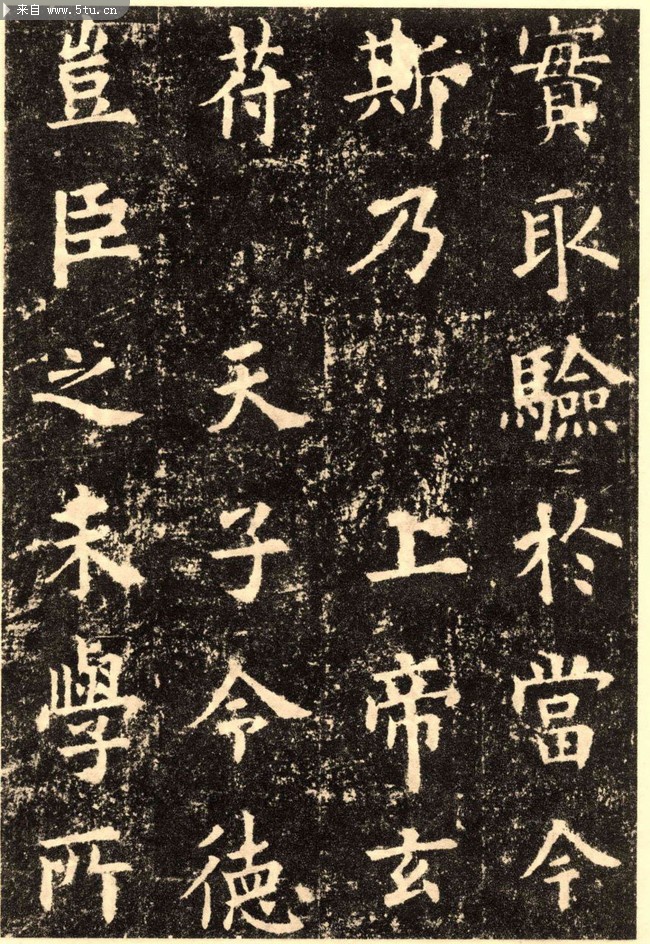 来自 www.5tu.cn
實取驗於當今
斯乃上帝玄
苻天子令德
豈臣之末學所